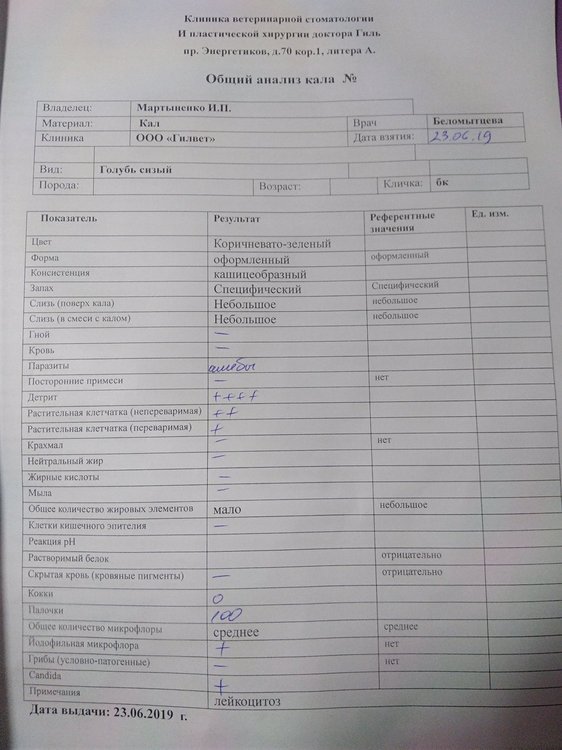 Клиника ветеринарной стоматологии
И пластической хирургии доктора Гиль
пр. Энергетиков, д.70 кор.1, литера А.
Общий анализ кала №
Владелец: Мартыненко И.П.
Материал: Кал Врач Беломытцева
Клиника ООО «Гилвет» Дата взятия: 23.06.19
Вид: Голубь сизый
Порода: Возраст: Кличка: бк
Показатель Результат Референтные значения Ед. изм.
Цвет Коричневато-зеленый
Форма оформленный оформленный
Консистенция кашицеобразный
Запах Специфический Специфический
Слизь (поверх кала) Небольшое небольшое
Слизь (в смеси с калом) Небольшое небольшое
Гной —
Кровь —
Паразиты амебы
Посторонние примеси — нет
Детрит ++++
Растительная клетчатка (непереваримая) ++
Растительная клетчатка (переваримая) +
Крахмал — нет
Нейтральный жир —
Жирные кислоты —
Мыла —
Общее количество жировых элементов мало небольшое
Клетки кишечного эпителия —
Реакция pH
Растворимый белок отрицательно
Скрытая кровь (кровяные пигменты) — отрицательно
Кокки 0
Палочки 100
Общее количество микрофлоры среднее среднее
Йодофильная микрофлора + нет
Грибы (условно-патогенные) — нет
Candida +
Примечания лейкоцитоз
Дата выдачи: 23.06.2019 г.